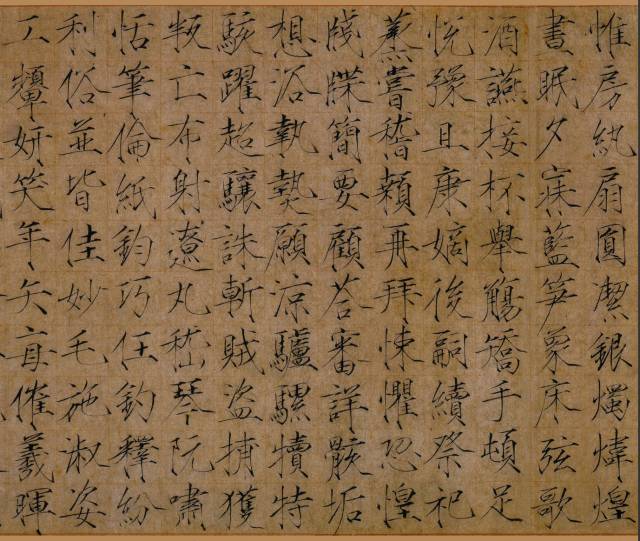 惟房紈扇圓潔銀燭煒煌
晝眠夕寐藍笋象床弦歌
酒讌接杯舉觴矯手頓足
悅豫且康嫡後嗣續祭祀
蒸嘗稽顙再拜悚懼恐惶
牋牒簡要顧荅審詳骸垢
想浴執熱願涼驢騾犢特
駭躍超驤誅斬賊盜捕獲
叛亡布射遼丸嵇琴阮嘯
恬筆倫紙鈞巧任釣釋紛
利俗並皆佳妙毛施淑姿
工顰妍笑年矢每催羲暉